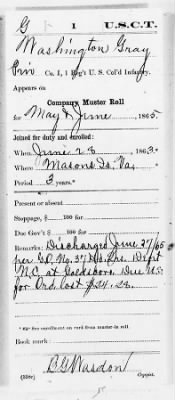 G 1 U.S.C.T.
Washington Gray
Priv Co. I, 1 Reg't U. S. Col'd Infantry.
Appears on
Company Muster Roll
for May & June, 1865.
Joined for duty and enrolled:
When June 28, 1863.*
Where Masons Is. Va,
Period 3 years.*
Present or absent
Stoppage, $ 100 for
Due Gov't $ 100 for
Remarks: Discharged June 3"/65
per G.O. No. 3" Hd. Qrs. Dept
N.C. at Goldsboro. Due U.S.
for Ord. lost $24.23.
*See enrollment on card from muster-in roll.
Book mark:
(358c) Copyist.